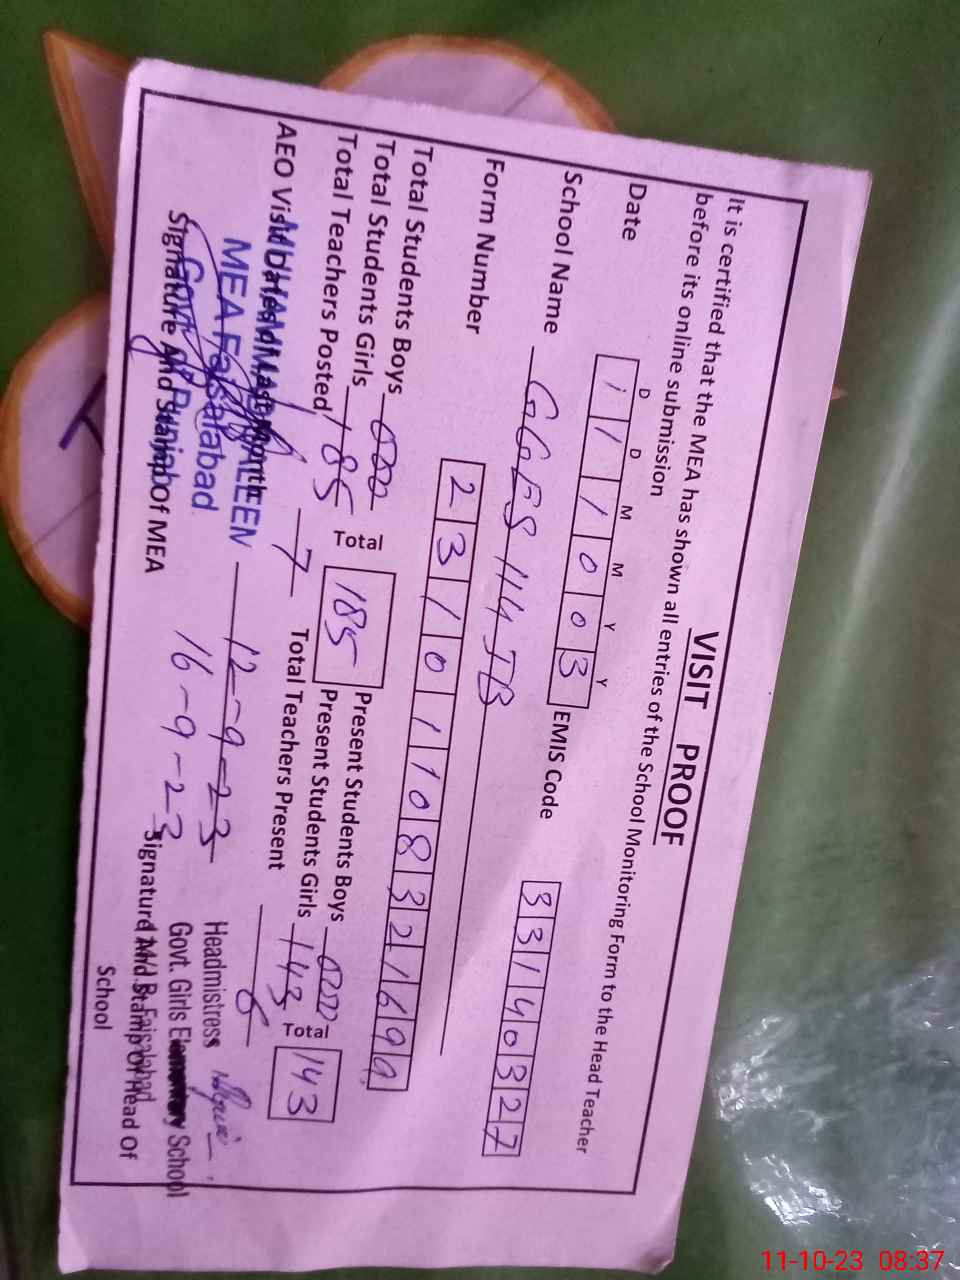 VISIT PROOF
It is certified that the MEA has shown all entries of the School Monitoring Form to the Head Teacher
before its online submission
D D M M Y Y
Date 1 1 1 0 0 3 EMIS Code 3 3 1 4 0 3 2 7
School Name GGES 114 JB
Form Number 2 3 1 0 1 1 0 8 3 2 1 6 9 9
Total Students Boys 000 Total 185 Present Students Boys 000 Total 143
Total Students Girls 185 Present Students Girls 143
Total Teachers Posted 7 Total Teachers Present 6
AEO Visit Dates 12-9-23
16-9-23
MEA Faisalabad
Govt of Punjab
Signature And Stamp of MEA
Headmistress
Govt. Girls Elementary School
J.B. Faisalabad
Signature And Stamp Of Head Of
School
11-10-23 08:37